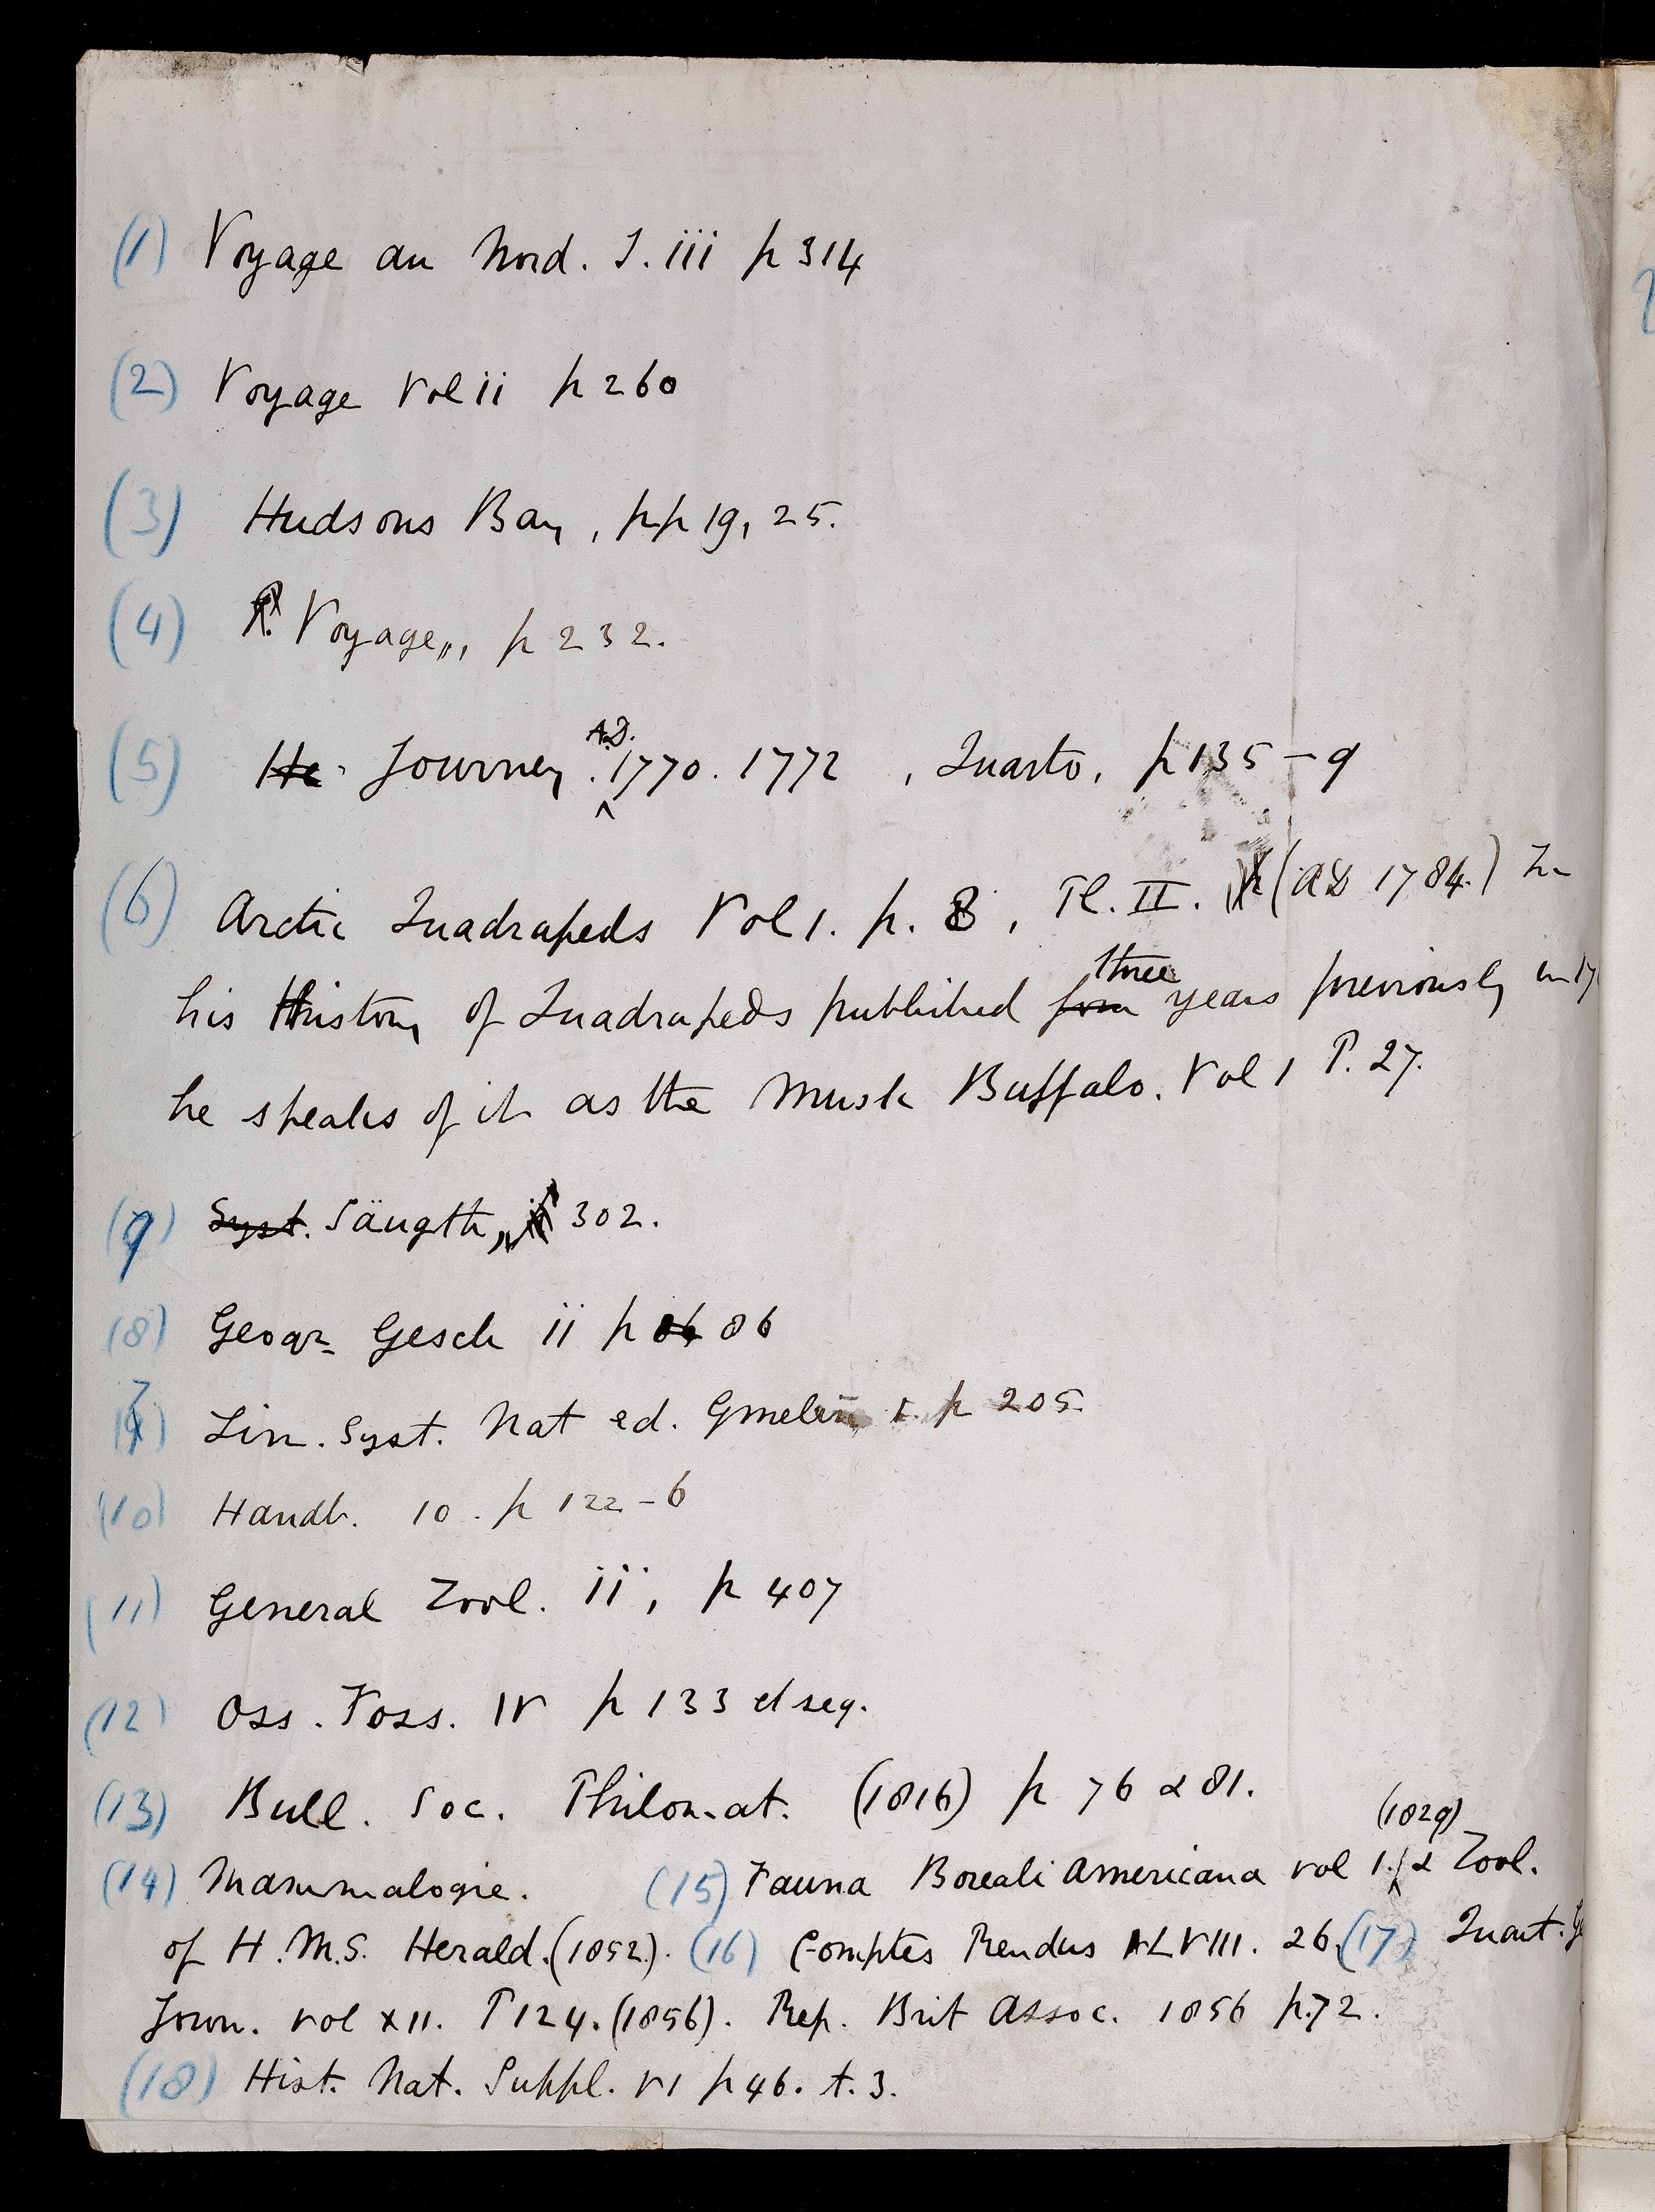 (1) Voyage au Nord. T. iii p 314
(2) Voyage Vol ii p 260
(3) Hudsons Bay, pp 19, 25.
(4) Voyage,, p 232.
A.D.
(5) He. Journey. 1770. 1772 , Quarto, p 135-9
(6) Arctic Quadrapeds Vol 1. p. 8, Pl. II. (AD 1784.) In
three
his History of Quadrapeds published four years previously in 17
he speaks of it as the Musk Buffalo. Vol 1 P. 27.
(9) Syst. Säugth,, 302.
(8) Geogr. Gesch ii p 86 86
(7) Lin. Syst. Nat ed. Gmelin I. p 205.
(10) Handb. 10. p 122-6
(11) General Zool. ii, p 407
(12) Oss. Foss. IV p 133 et seq.
(13) Bull. Soc. Philomat. (1816) p 76 & 81.
(1829)
(14) Mammalogie. (15) Fauna Boreali Americana vol 1. & Zool.
of H.M.S. Herald. (1852). (16) Comptes Rendus LVIII. 26. (17) Quart.
Journ. vol XII. P 124. (1856). Rep. Brit Assoc. 1856 p. 72.
(18) Hist. Nat. Suppl. VI p 46. t. 3.